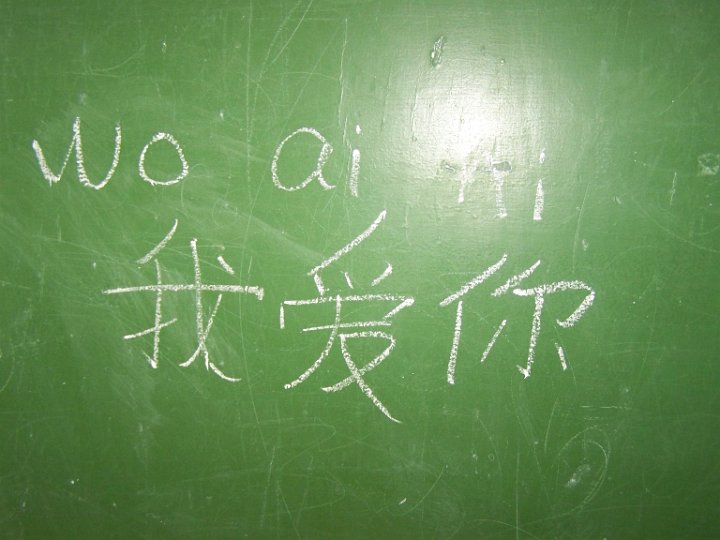 wo ai ni
我爱你